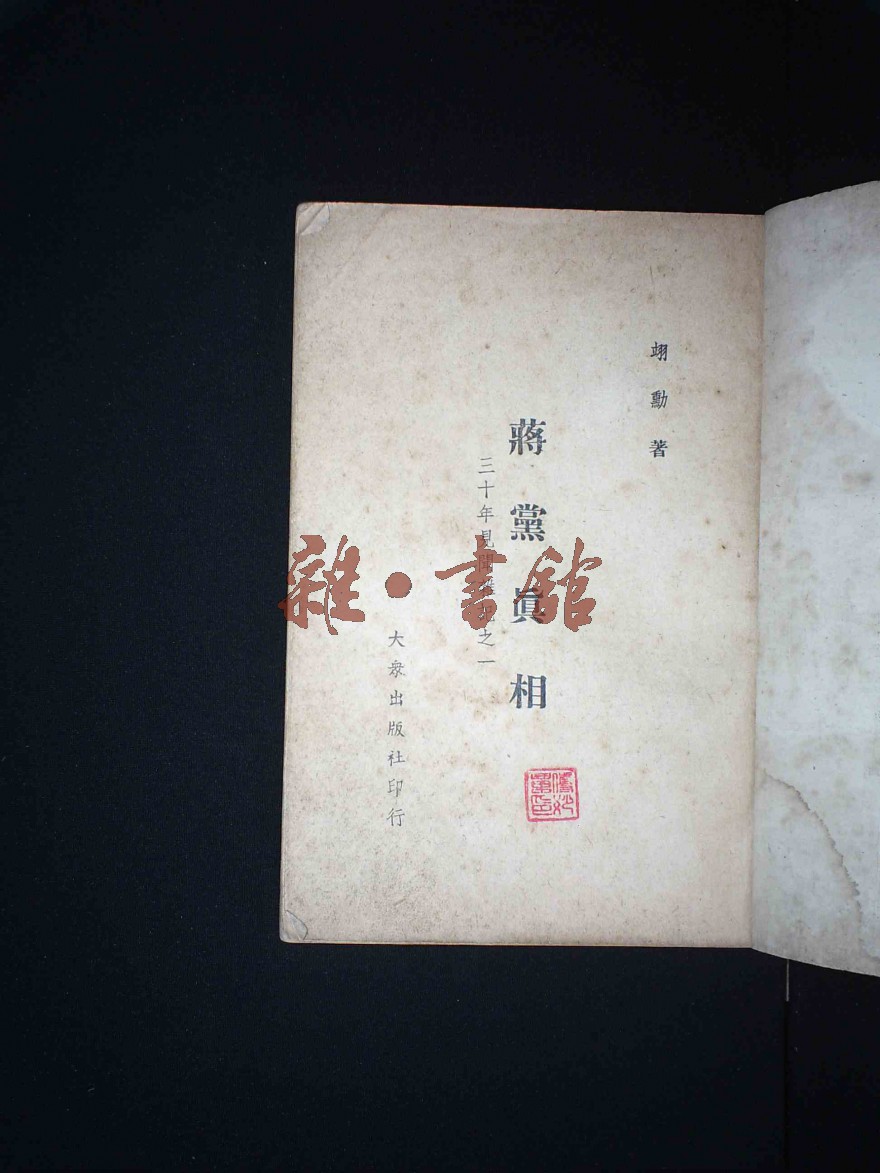 翊勳著
蔣黨眞相
三十年見聞雜記之一
大衆出版社印行
雜·書舘